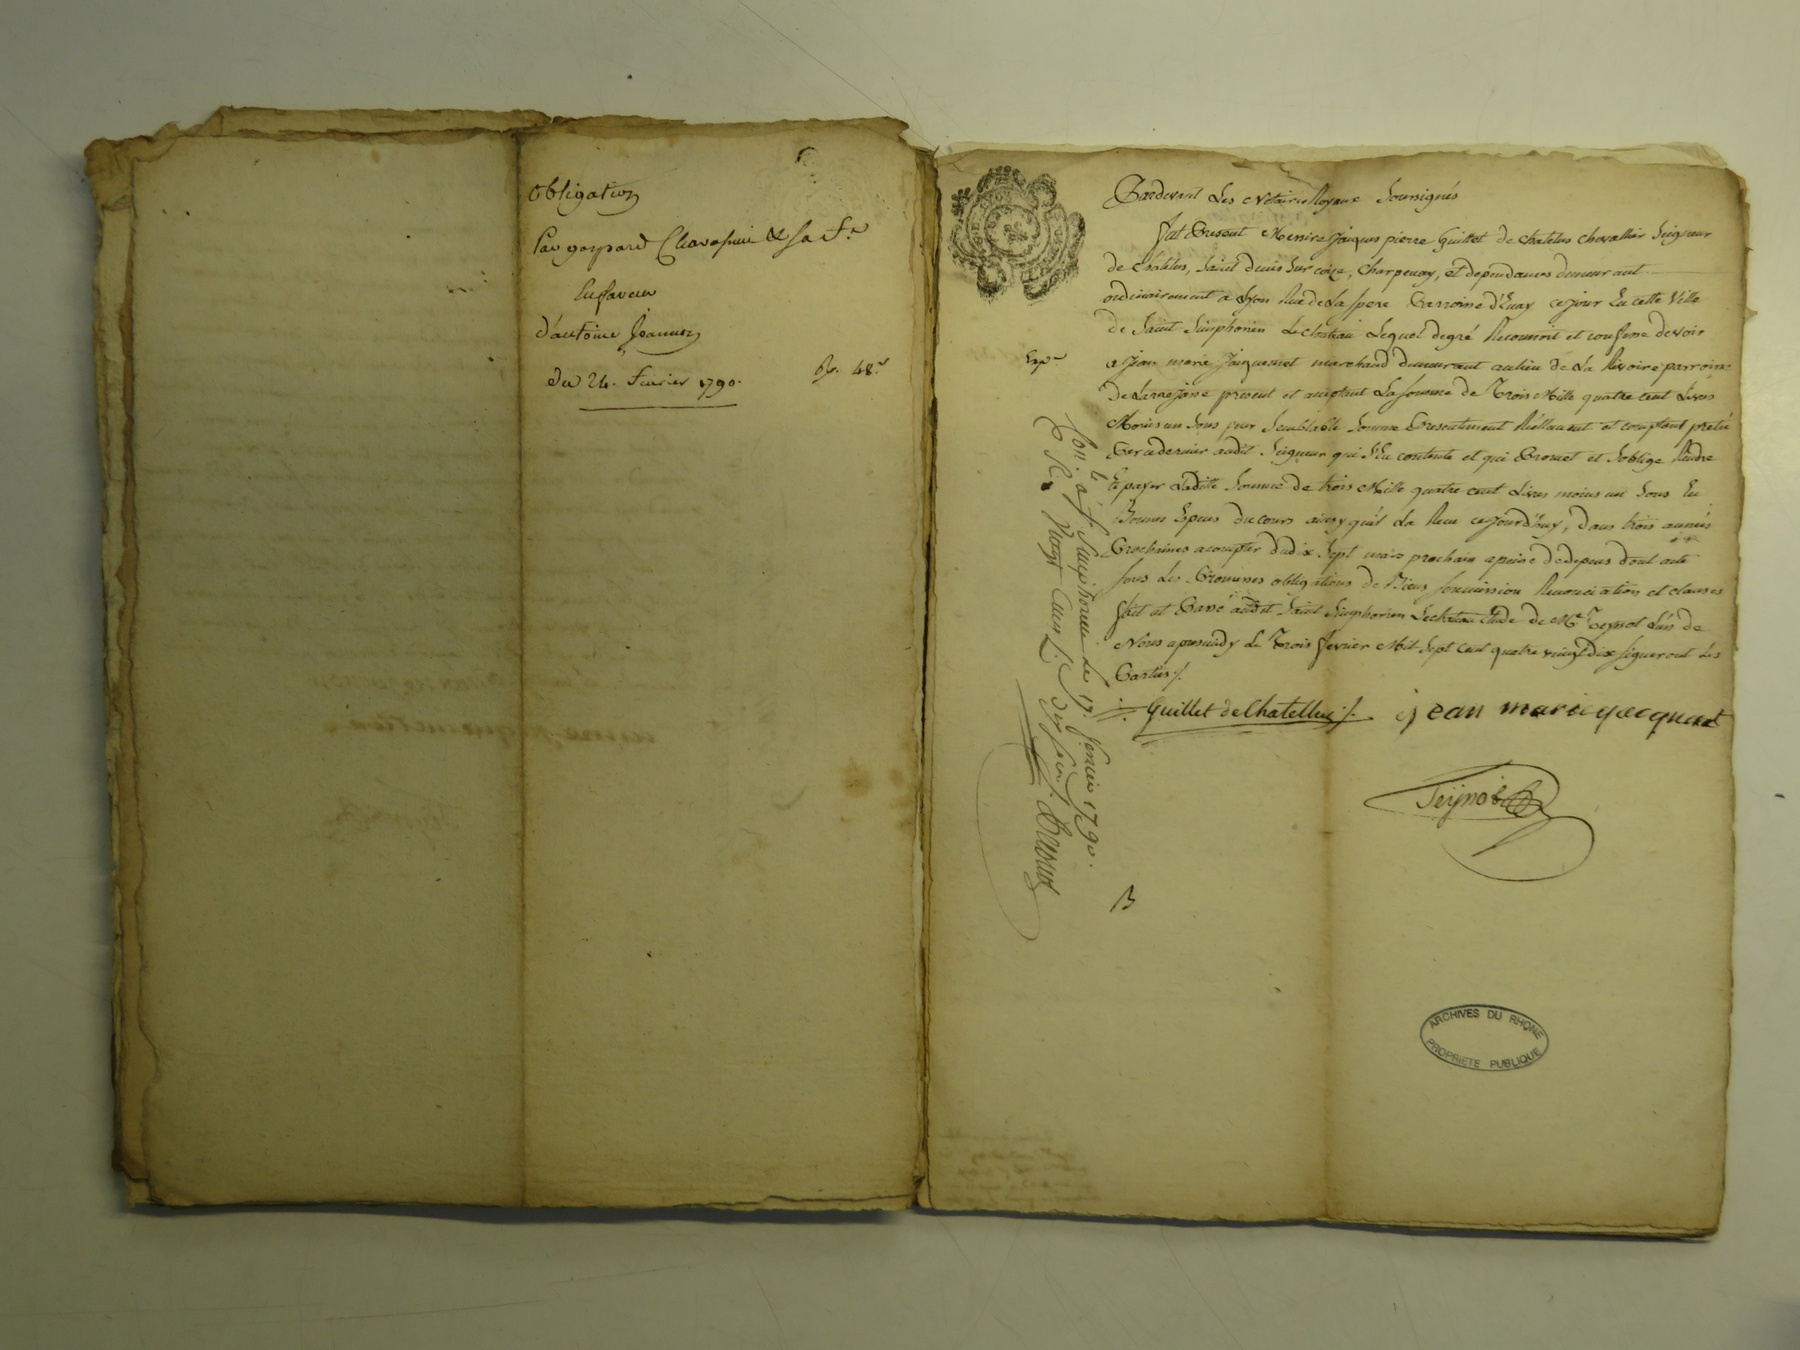 obligation
Par gaspard Chavassieu & sa fe
En faveur
d'antoine Joannon
du 24. fevrier 1790.
48
Pardevant Les Notaires Royaux Soussignés
fut Present Messire Jacques pierre Guillet de chatelus chevallier Seigneur
de Chatelus, Saint denis Sur coize, Charpenay, et dependances demeurant
ordinairement a Lyon Rue de La Parroisse d'Enay ce jour En cette Ville
de Saint Simphorien Le chateau Lequel de gré Reconnoit et confesse devoir
Exp
a Jean marie Jacquemet marchand demeurant au lieu de La Rivoire parroisse
de Larajasse present et acceptant La somme de Trois Mille quatre cent Livres
Moins un Sous pour Semblable Somme Presentement Réellement et comptant pretée
Par ce dernier audit Seigneur qui S'En contente et qui Promet et S'oblige Rendre
Et payer Laditte Somme de trois Mille quatre cent Livres moins un Sous En
Bonnes Especes du cours ainsy qu'il La Recu ce jourd'huy, dans trois années
Prochaines a compter du dix Sept mars prochain a peine de depens dont acte
sous Les Promesses obligations de Biens soumission Renonciation et clauses
fait et Passé audit Saint Simphorien Le chateau Etude de Me Teynot L'un de
Nous apresmidy Le Trois fevrier Mil Sept Cent quatre vingt dix signeront Les
Parties /.
Guillet de Chatellus /.
jean marie jacquemet
Teynot
Con. lé a St Simphorien le 17. fevrier 1790.
B
ARCHIVES DU RHÔNE
PROPRIÉTÉ PUBLIQUE